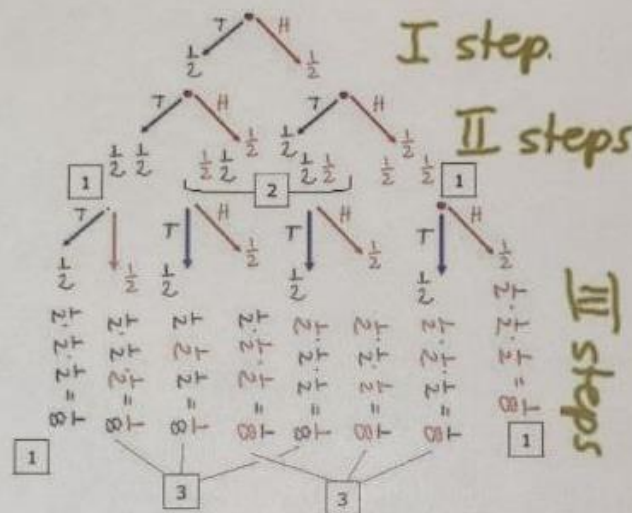 T H
1/2 1/2 I step.
T H T H
1/2 1/2 II steps
1/2 1/2 1/2 1/2 1/2 1/2 1/2 1/2
1 2 1
T T H T H T H
1/2 1/2 1/2 1/2 1/2 1/2 1/2 1/2
III steps
1/2 · 1/2 · 1/2 = 1/8
1/2 · 1/2 · 1/2 = 1/8
1/2 · 1/2 · 1/2 = 1/8
1/2 · 1/2 · 1/2 = 1/8
1/2 · 1/2 · 1/2 = 1/8
1/2 · 1/2 · 1/2 = 1/8
1/2 · 1/2 · 1/2 = 1/8
1/2 · 1/2 · 1/2 = 1/8
1 3 3 1